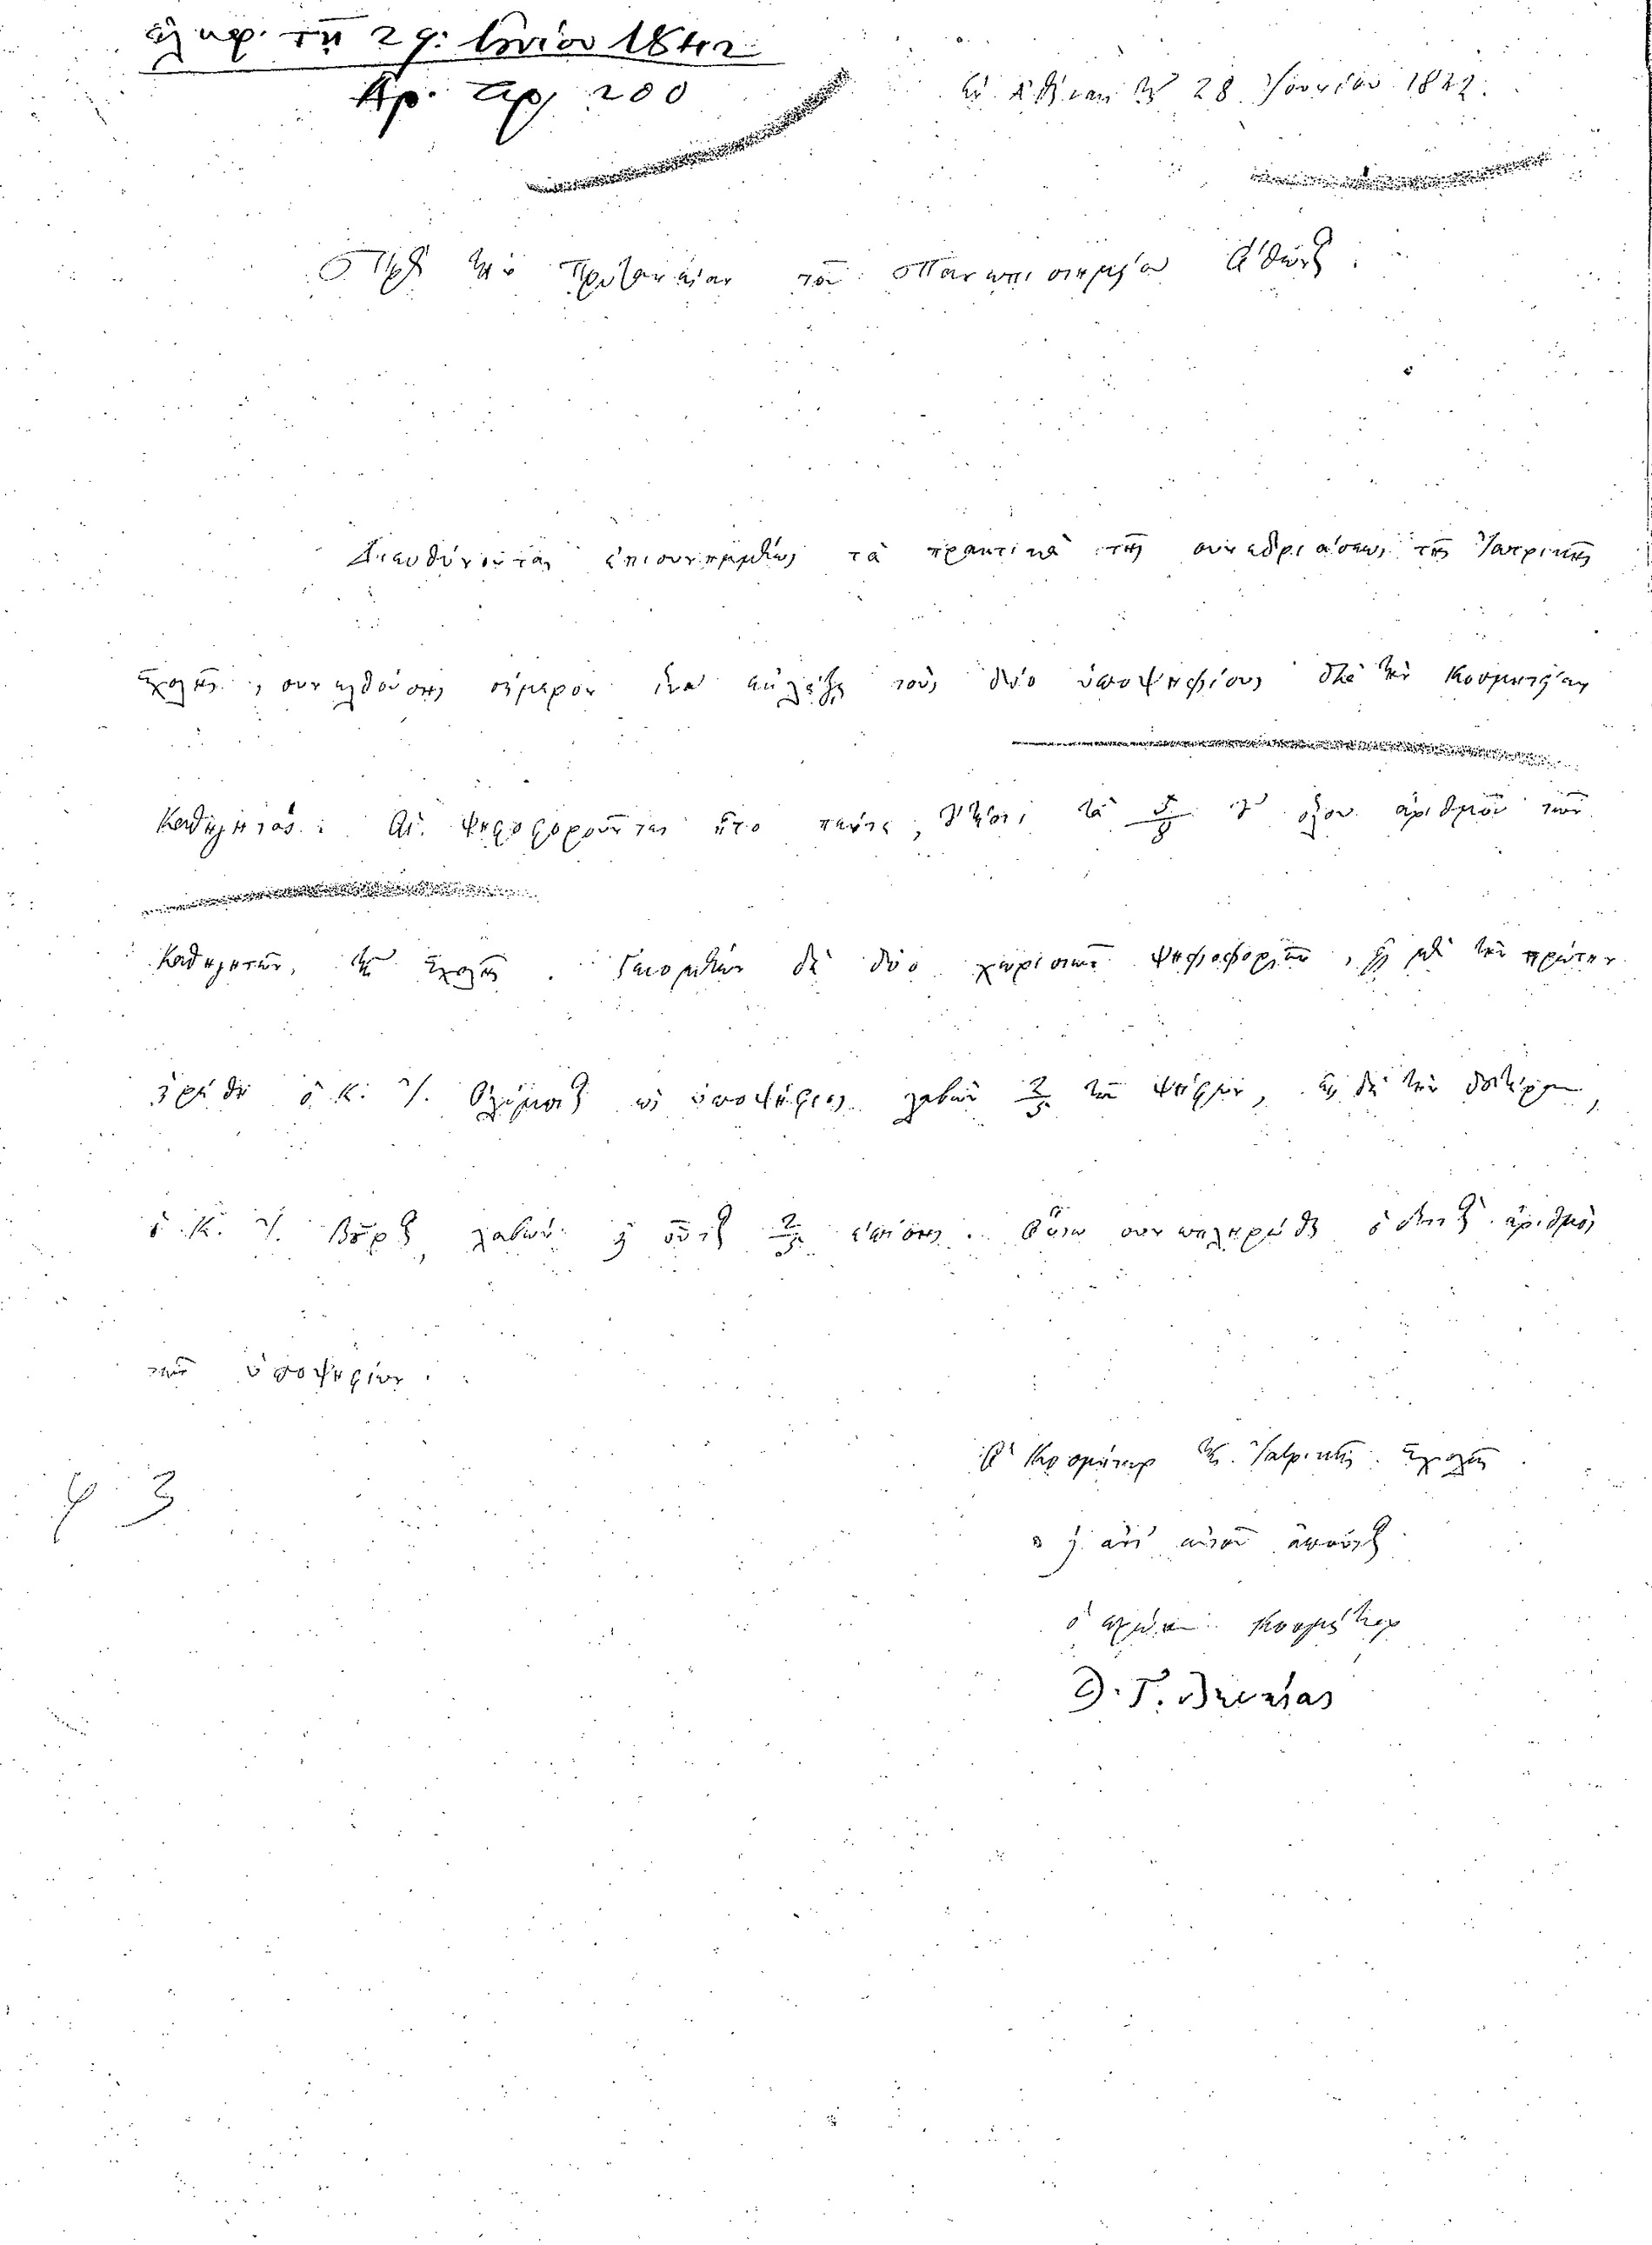 ἐλήφ. τῇ 29: Ἰουνίου 1842
Ἀρ. πρ. 200
Ἐν Ἀθήναις τῇ 28 Ἰουνίου 1842.
Πρὸς τὴν Πρυτανείαν τοῦ Πανεπιστημίου Ὄθωνος.
Διευθύνονται ἐπισυνημμένως τὰ πρακτικὰ τῆς συνεδριάσεως τῆς Ἰατρικῆς
Σχολῆς, συνελθούσης σήμερον ἵνα ἐκλέξῃ τοὺς δύο ὑποψηφίους διὰ τὴν Κοσμητείαν
Καθηγητάς. Οἱ ψηφοφοροῦντες ἦσαν πέντε, τὰ 5/8 τοῦ ὅλου ἀριθμοῦ τῶν
Καθηγητῶν τῆς Σχολῆς. Γενομένων δὲ δύο χωριστῶν ψηφοφοριῶν, μὲ τὴν πρώτην
ἐῤῥέθη ὁ Κ. Ἰ. Ὀλύμπιος ὡς ὑποψήφιος λαβὼν 3/5 τῶν ψήφων, μὲ δὲ τὴν δευτέραν,
ὁ Κ. Ἰ. Βοῦρος, λαβὼν καὶ οὗτος 3/5 ἐπίσης. Οὕτω συνεπληρώθη ὁ διπλοῦς ἀριθμὸς
τῶν ὑποψηφίων.
Ὁ Κοσμήτωρ τῆς Ἰατρικῆς Σχολῆς
καὶ ἀντ' αὐτοῦ ἀπόντος
ὁ Κοσμήτωρ